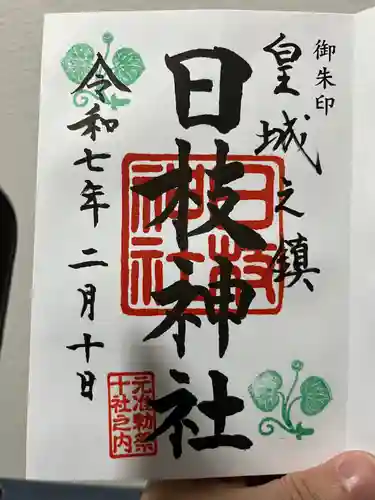 御朱印
皇城之鎮
日枝神社
日枝
神社
令和七年 二月十日
元准勅祭
十社之内